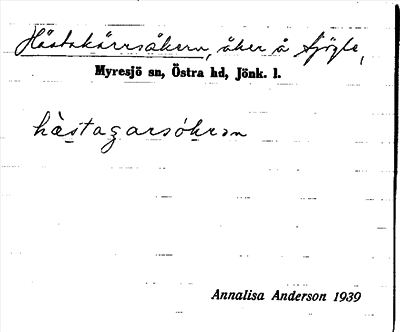 Hästakärrsåkern, åker å Sjögle,
Myresjö sn, Östra hd, Jönk. l.
hästagarsókrən
Annalisa Anderson 1939